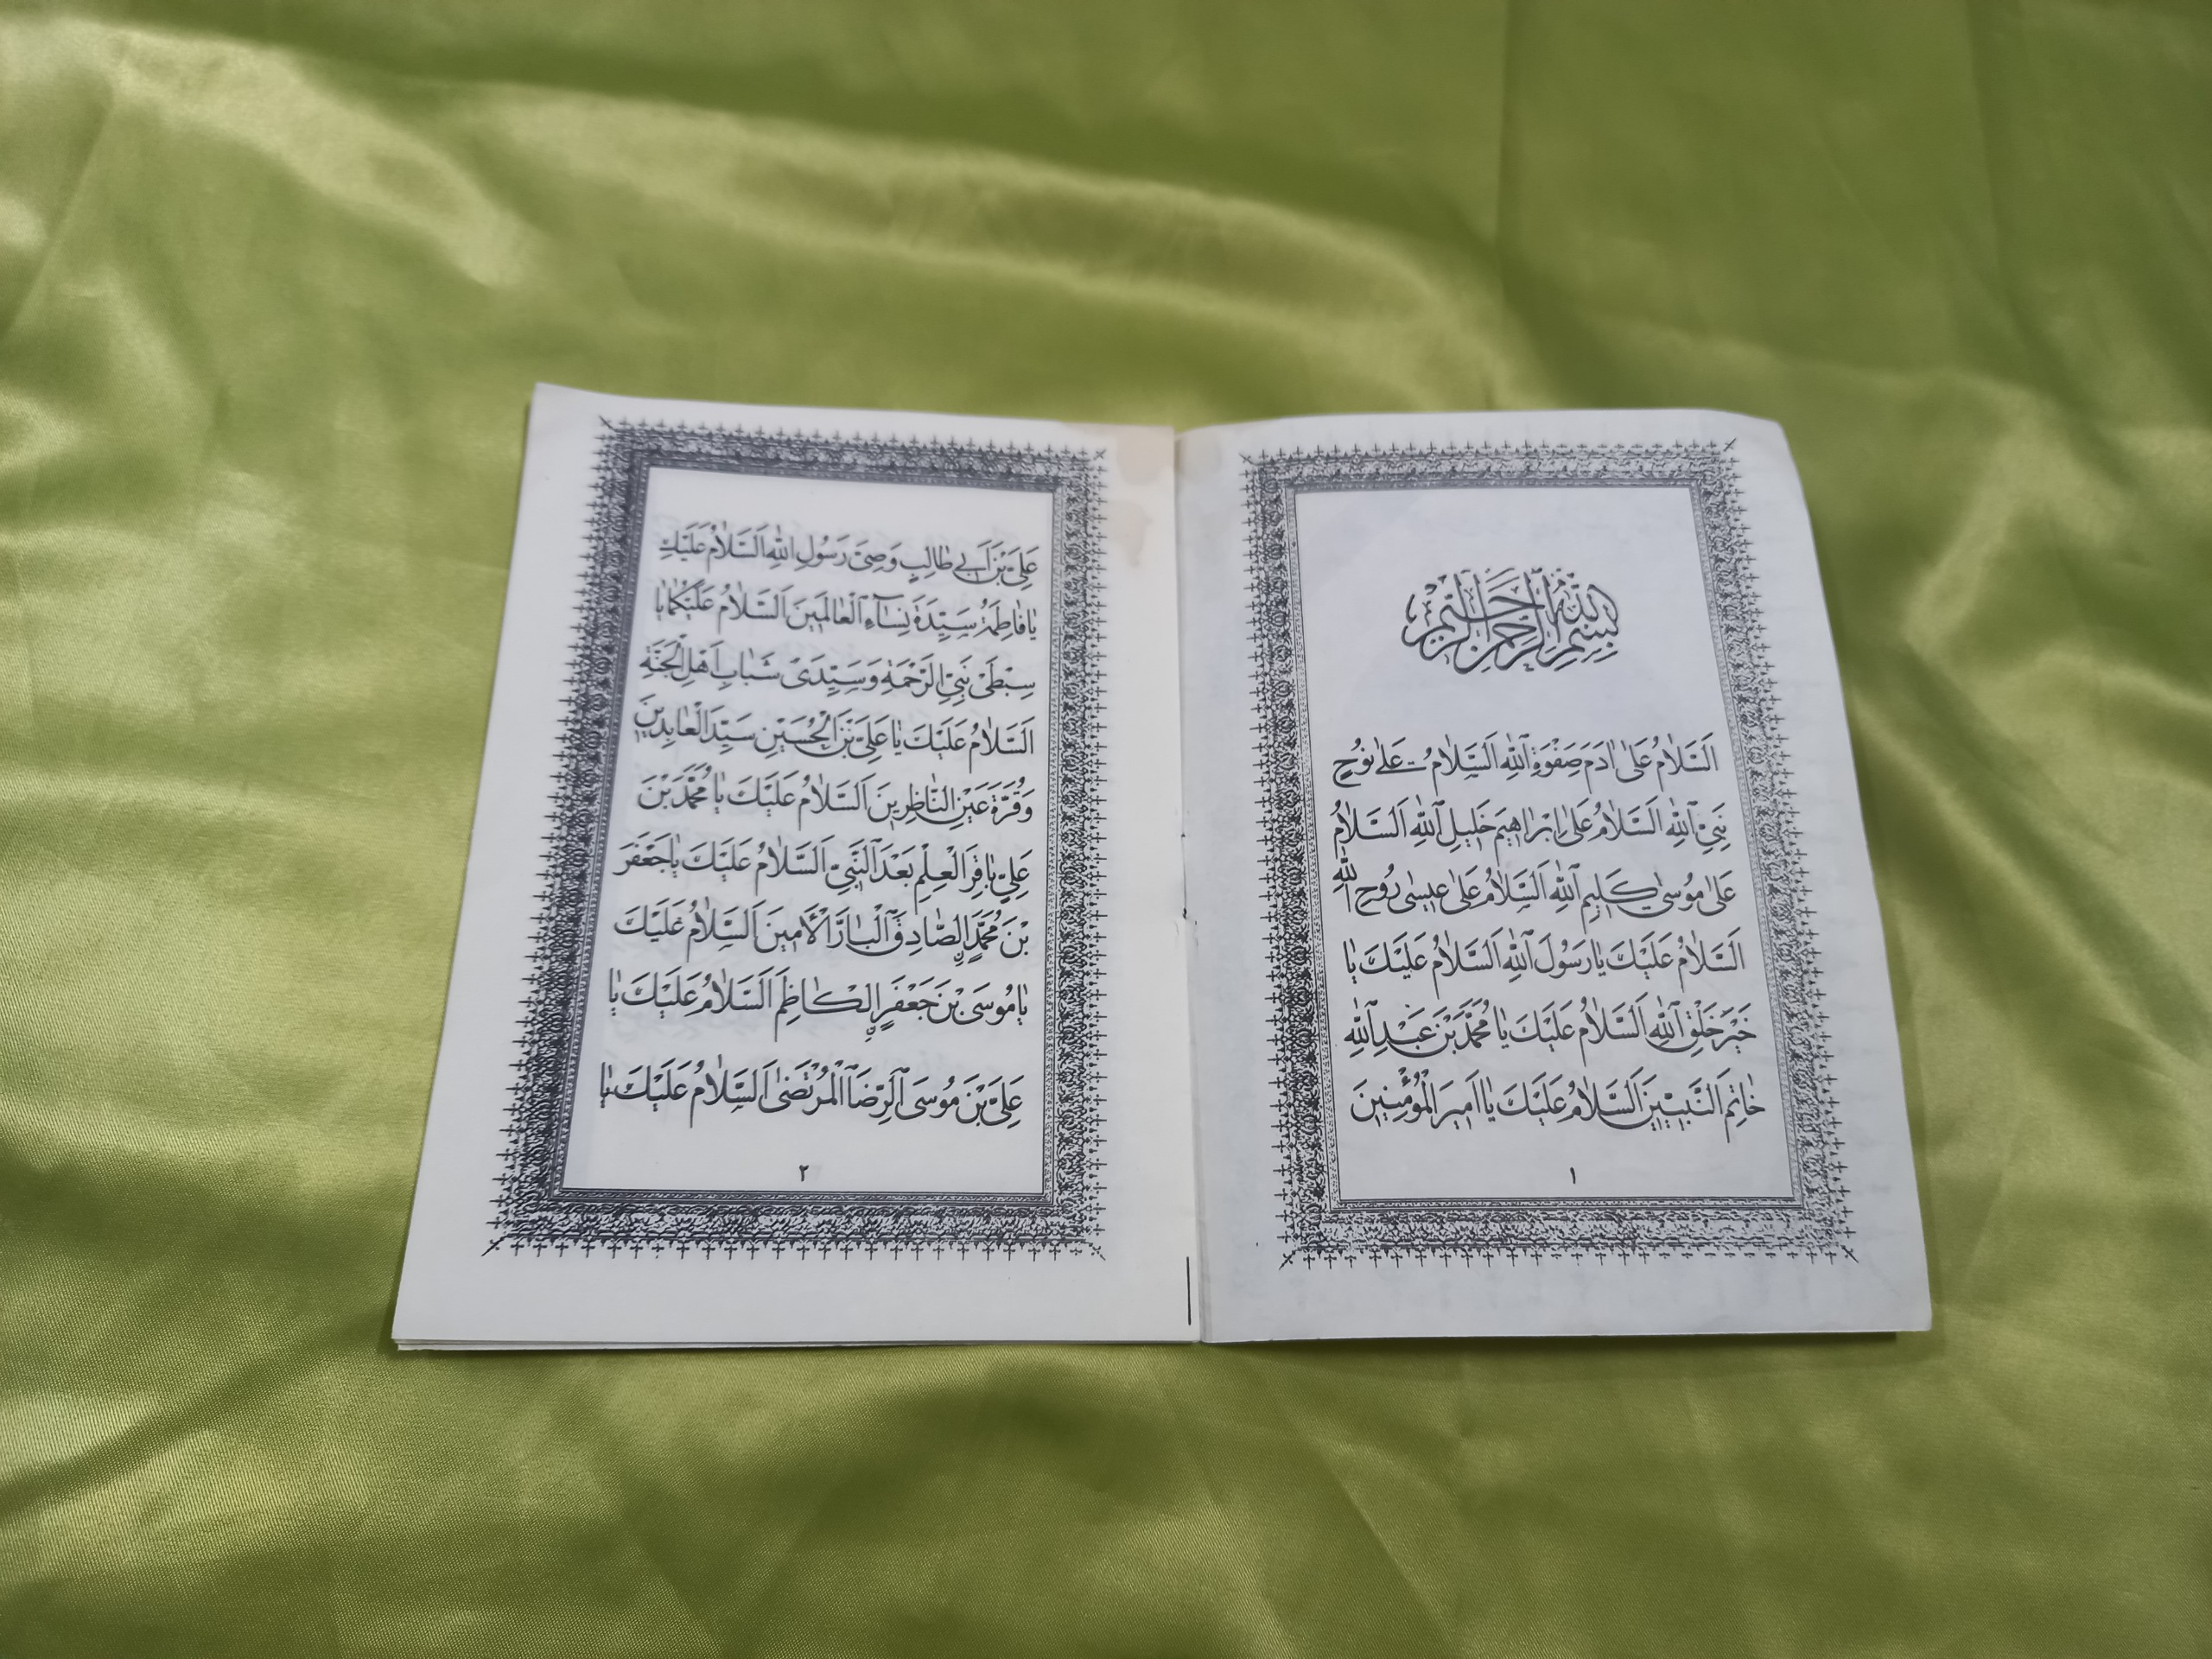 بِسْمِ اللّٰهِ الرَّحْمٰنِ الرَّحیٖمِ
اَلسَّلاٰمُ عَلیٰ اٰدَمَ صَفْوَةِ اللّٰهِ اَلسَّلاٰمُ عَلیٰ نُوحٍ
نَبِیِّ اللّٰهِ اَلسَّلاٰمُ عَلیٰ اِبْراٰهیٖمَ خَلیٖلِ اللّٰهِ اَلسَّلاٰمُ
عَلیٰ مُوسیٰ کَلیٖمِ اللّٰهِ اَلسَّلاٰمُ عَلیٰ عیٖسیٰ رُوحِ اللّٰهِ
اَلسَّلاٰمُ عَلَیْكَ یاٰ رَسُولَ اللّٰهِ اَلسَّلاٰمُ عَلَیْكَ یاٰ
خَیْرَ خَلْقِ اللّٰهِ اَلسَّلاٰمُ عَلَیْكَ یاٰ مُحَمَّدَ بْنَ عَبْدِ اللّٰهِ
خاٰتِمَ النَّبِیّیٖنَ اَلسَّلاٰمُ عَلَیْكَ یاٰ اَمیٖرَ الْمُؤْمِنیٖنَ
١
عَلِیَّ بْنَ اَبیٖ طاٰلِبٍ وَصِیَّ رَسُولِ اللّٰهِ اَلسَّلاٰمُ عَلَیْكِ
یاٰ فاٰطِمَةُ سَیِّدَةَ نِسآٰءِ الْعاٰلَمیٖنَ اَلسَّلاٰمُ عَلَیْکُماٰ یاٰ
سِبْطَیْ نَبِیِّ الرَّحْمَةِ وَ سَیِّدَیْ شَباٰبِ اَهْلِ الْجَنَّةِ
اَلسَّلاٰمُ عَلَیْكَ یاٰ عَلِیَّ بْنَ الْحُسَیْنِ سَیِّدَ الْعاٰبِدیٖنَ
وَ قُرَّةَ عَیْنِ النّاٰظِریٖنَ اَلسَّلاٰمُ عَلَیْكَ یاٰ مُحَمَّدَ بْنَ
عَلِیٍّ باٰقِرَ الْعِلْمِ بَعْدَ النَّبِیِّ اَلسَّلاٰمُ عَلَیْكَ یاٰ جَعْفَرَ
بْنَ مُحَمَّدٍ الصّاٰدِقَ الْباٰرَّ الْاَمیٖنَ اَلسَّلاٰمُ عَلَیْكَ
یاٰ مُوسَی بْنَ جَعْفَرٍ الْکاٰظِمَ اَلسَّلاٰمُ عَلَیْكَ یاٰ
عَلِیَّ بْنَ مُوسَی الرِّضَا الْمُرْتَضیٰ اَلسَّلاٰمُ عَلَیْكَ یاٰ
٢